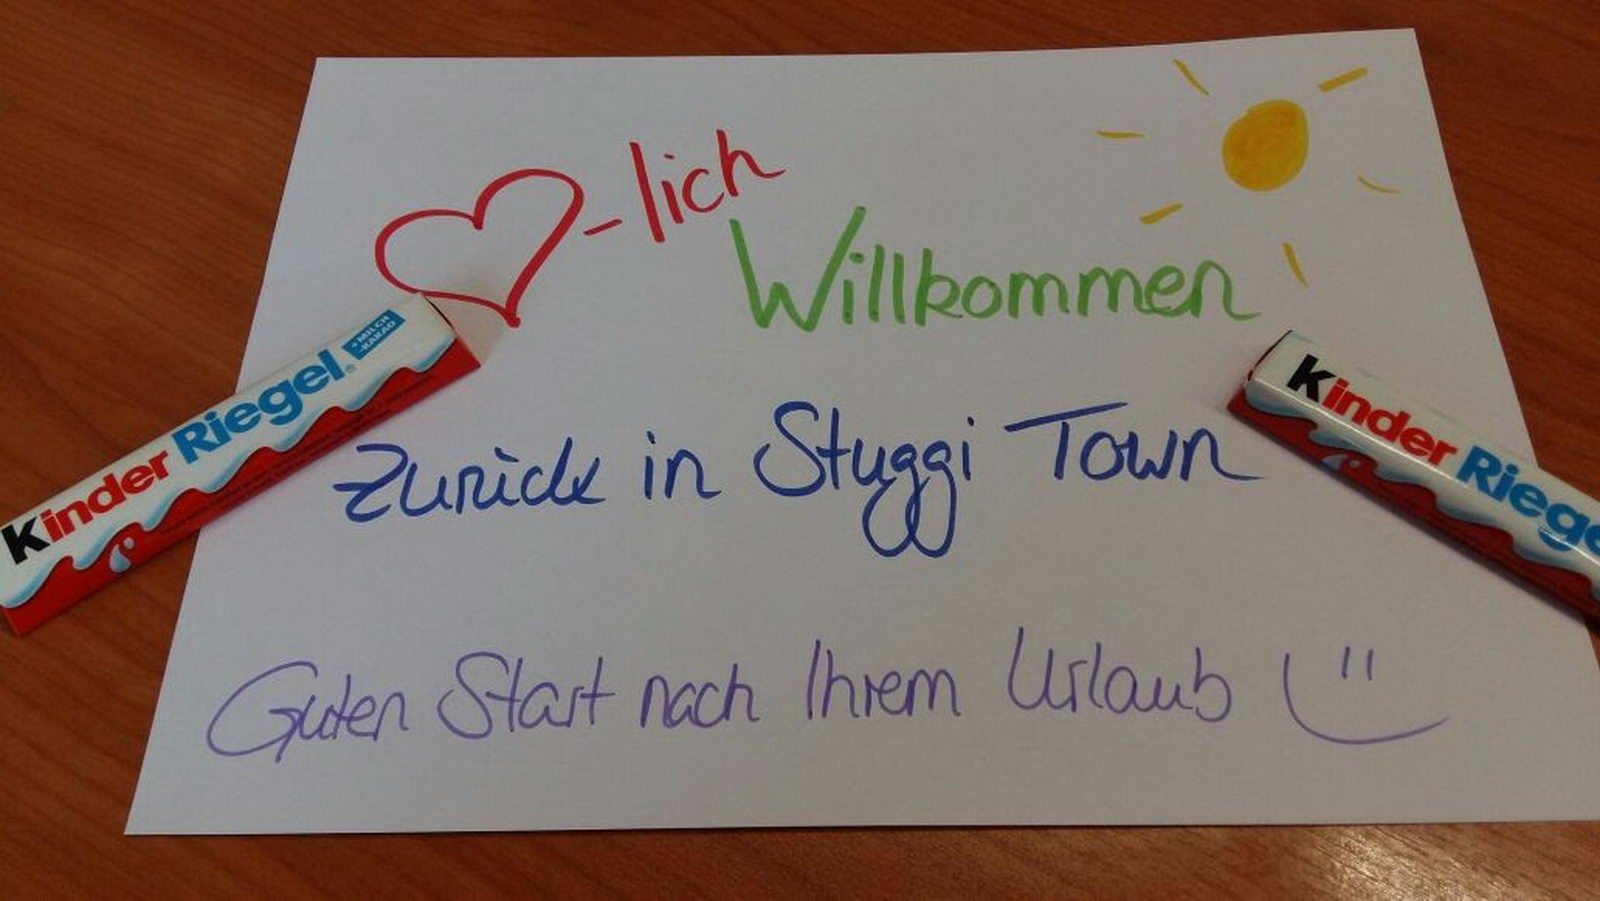 ♡-lich
Willkommen
Zurück in Stuggi Town
Guten Start nach Ihrem Urlaub
Kinder Riegel
+MILCH
-KAKAO
Kinder Riege